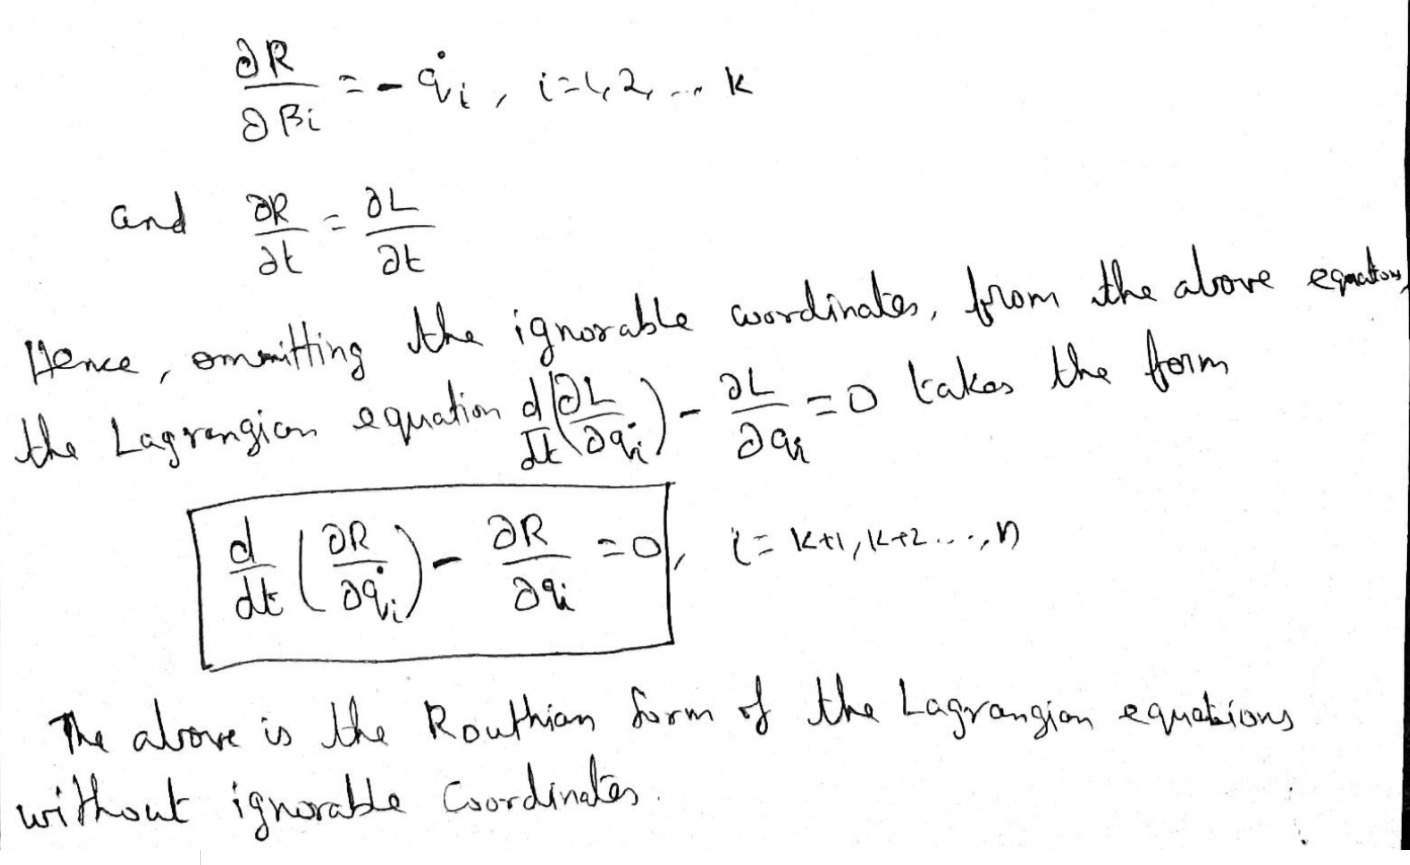 ∂R/∂βi = - q̇i, i=1,2,... k
and ∂R/∂t = ∂L/∂t
Hence, ommitting the ignorable coordinates, from the above equations,
the Lagrangian equation d/dt(∂L/∂q̇i) - ∂L/∂qi = 0 takes the form
d/dt(∂R/∂q̇i) - ∂R/∂qi = 0, i = k+1, k+2...., n
The above is the Routhian form of the Lagrangian equations
without ignorable Coordinates.